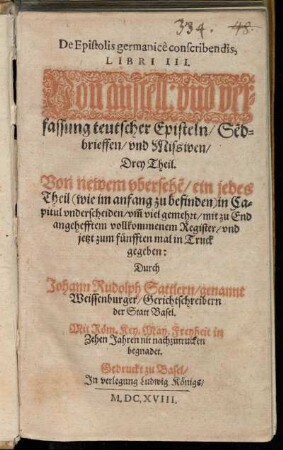 334. 48.
De Epistolis germanicè conscribendis,
LIBRI III.
Von anstell: vnd ver-
fassung teutscher Episteln / Sēd-
brieffen / vnd Missiuen /
Drey Theil.
Von newem vbersehē / ein jedes
Theil (wie im anfang zu befinden) in Ca-
pitul vnderscheiden / vm̄ viel gemehrt / mit zu End
angehefftem vollkommenem Register / vnd
jetzt zum fünfften mal in Truck
gegeben:
Durch
Johann Rudolph Sattlern / genannt
Weissenburger / Gerichtschreibern
der Statt Basel.
Mit Röm. Key. May. Freyheit in
Zehen Jahren nit nachzutrucken
begnadet.
Gedruckt zu Basel /
In verlegung Ludwig Königs /
M. DC. XVIII.